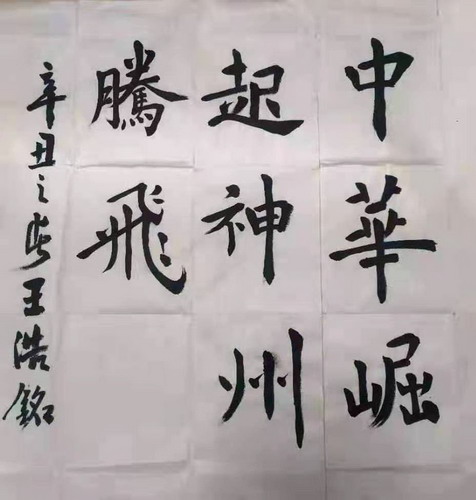 中華崛
起神州
騰飛
辛丑之春王浩銘